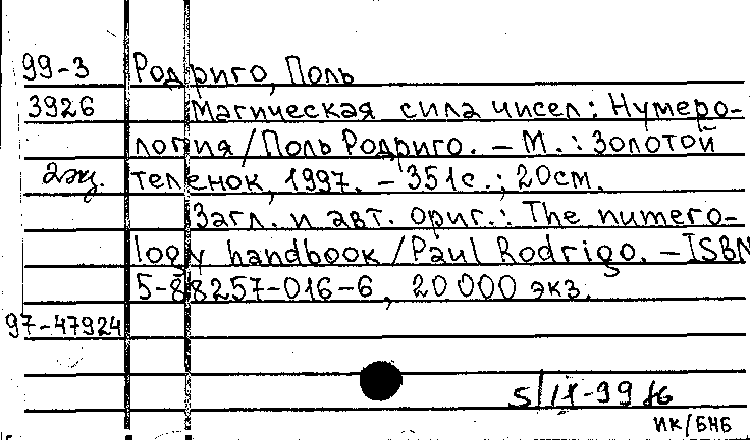 99-3 Родриго, Поль
3926 Магическая сила чисел: Нумеро-
логия/Поль Родриго. – М.: Золотой
2экз. теленок, 1997. – 351с.; 20см.
Загл. и авт. ориг.: The numero-
logy handbook/Paul Rodrigo. – ISBN
5-88257-016-6, 20 000 экз.
97-47924
5/II-99
ИК/БНБ